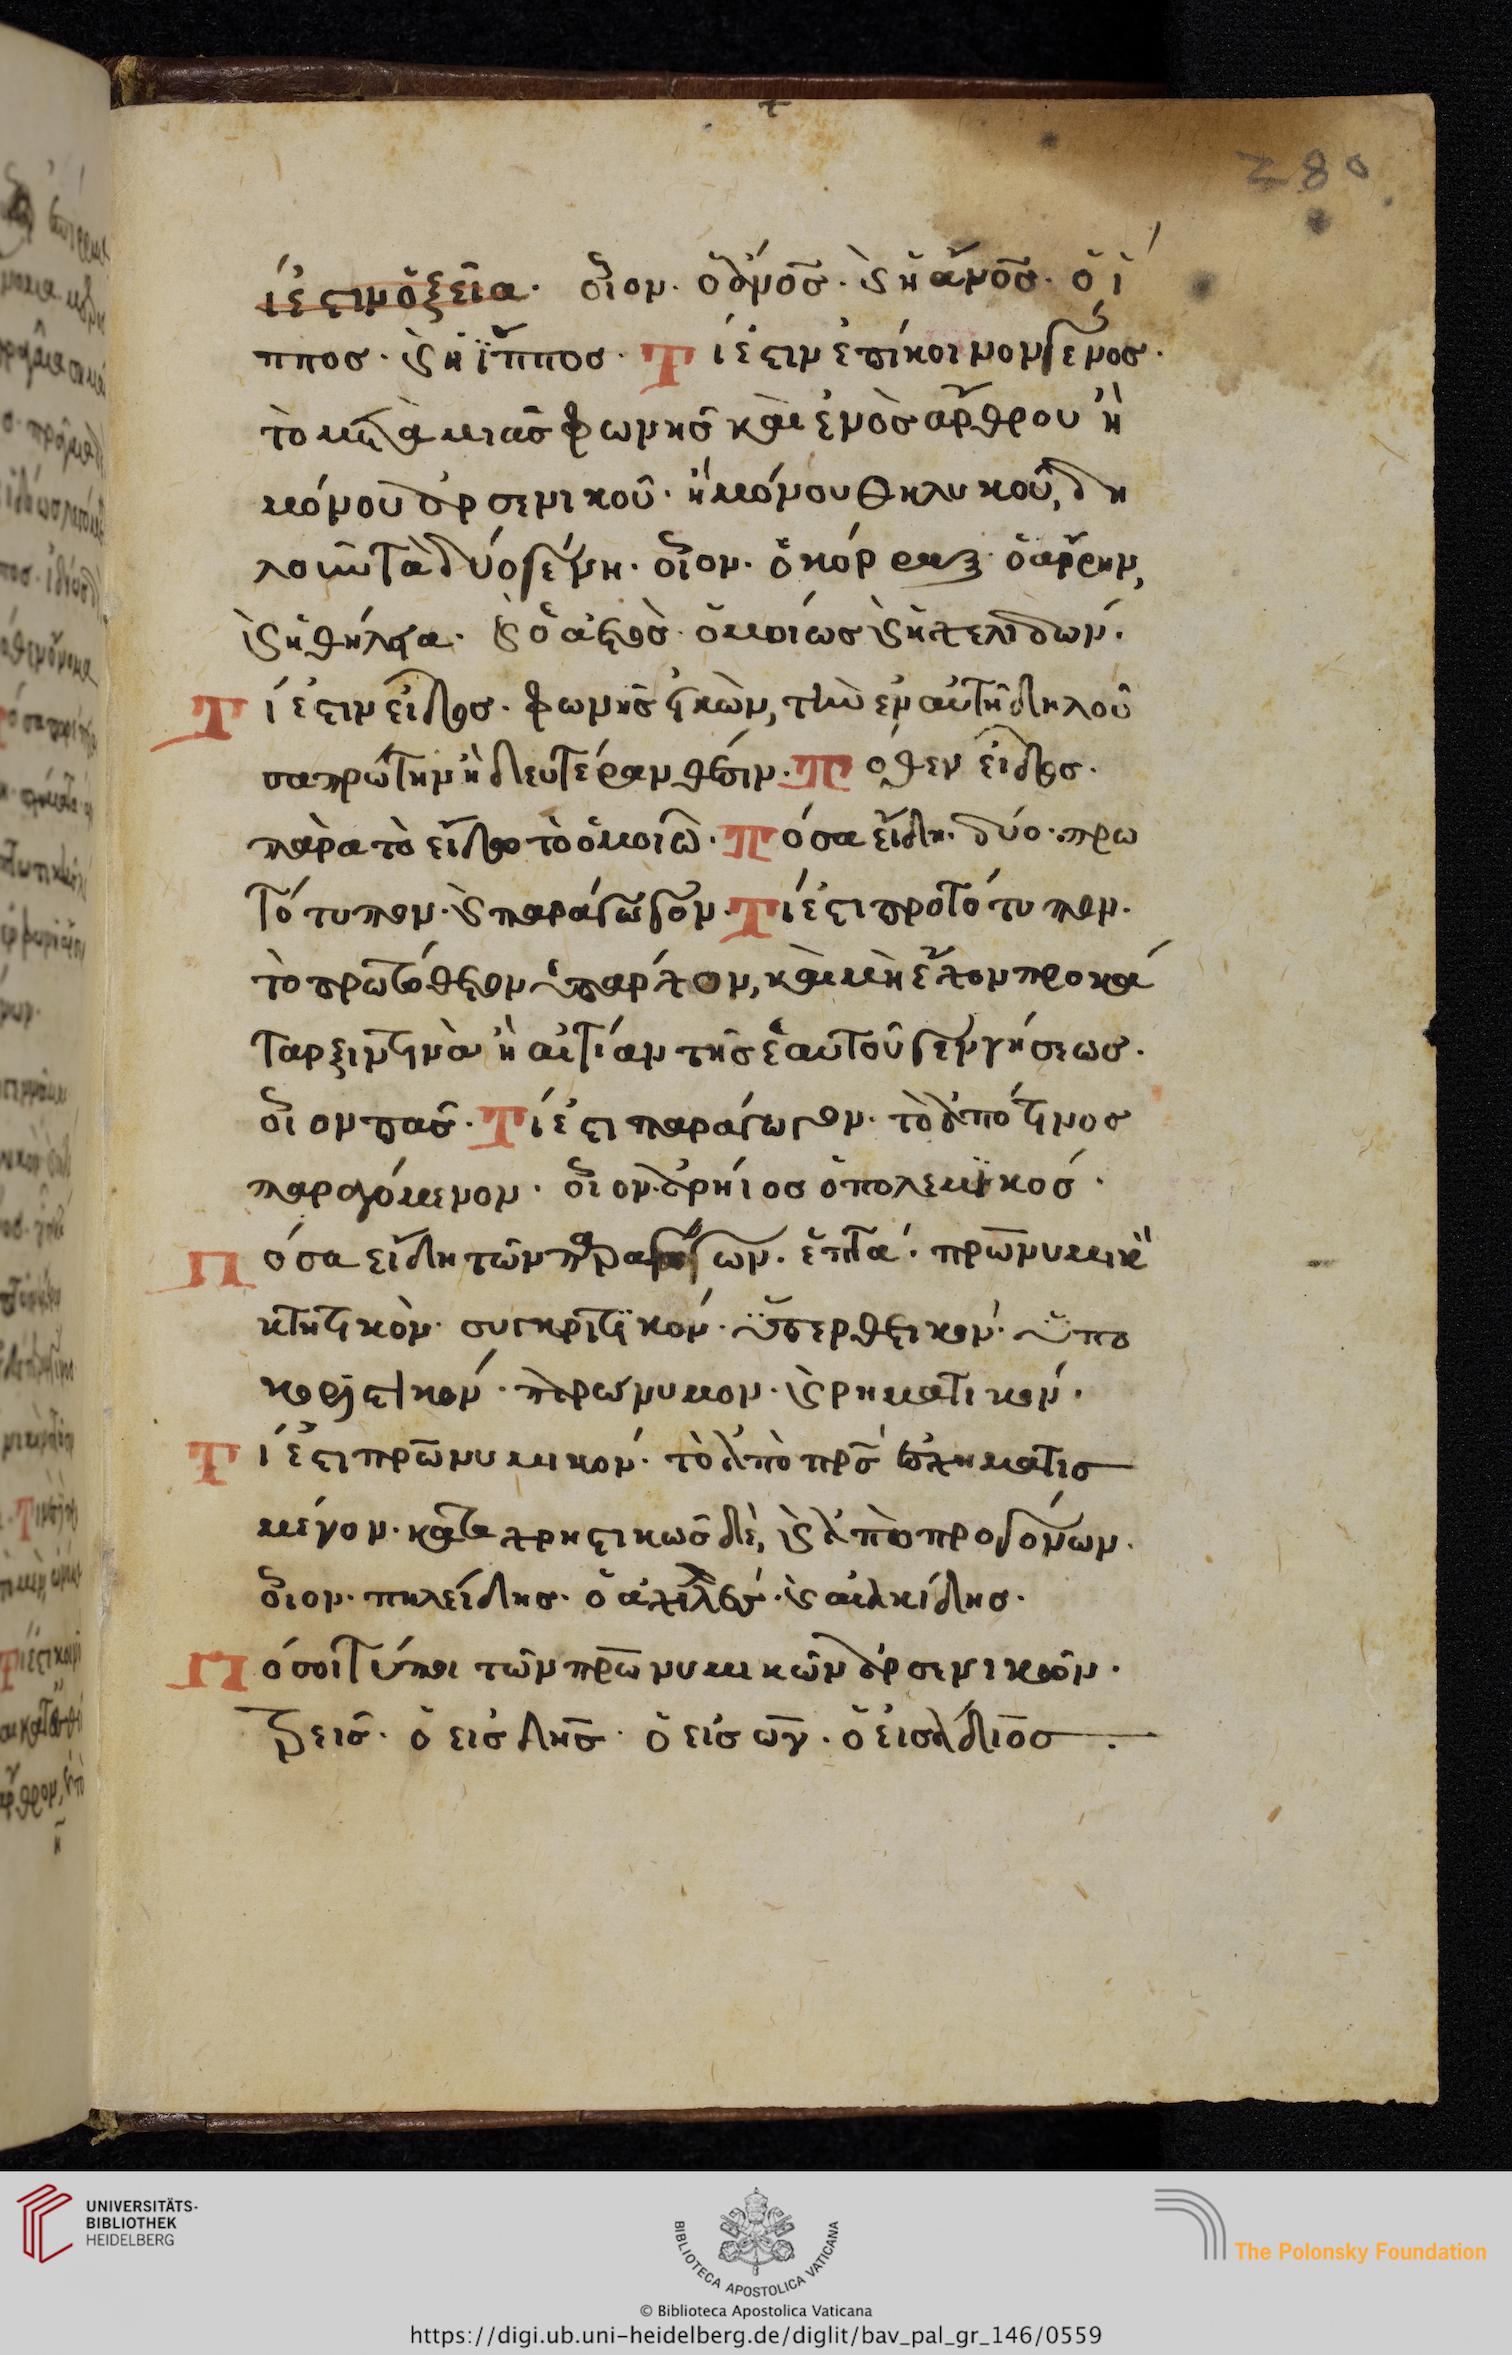 280
ί ἐστιν ὀξεῖα· οἷον· ὁ ἄνος· καὶ ἡ ἄνος· ὁ ἵ
ππος· καὶ ἡ ἵππος· Τί ἐστιν ἐπίκοινον γένος·
τὸ μετὰ μιᾶς φωνῆς καὶ ἑνὸς ἄρθρου ἢ
μόνου ἀρσενικοῦ· ἢ μόνου θηλυκοῦ, δη
λοῦν τὰ δύο γένη· οἷον· ὁ κόραξ· ὁ ἄρρην,
καὶ ἡ θήλεια· καὶ ὁ ἀετὸς· ὁμοίως καὶ ἡ χελιδών·
Τί ἐστιν εἶδος· φωνῆς εἰκὼν, τὴν ἐν αὐτῇ δηλοῦ
σα πρώτην ἢ δευτέραν θέσιν· Πόθεν εἶδος·
παρὰ τὸ εἴδω τὸ ὁμοιῶ· Πόσα εἴδη· δύο· πρω
τότυπον· καὶ παράγωγον· Τί ἐστι προτότυπον·
τὸ πρωτόθετον ὑπάρχον, καὶ μὴ ἔχον προκα
ταρξίν τινα ἢ αἰτίαν τῆς ἑαυτοῦ γεννήσεως·
οἷον πᾶς· Τί ἐστι παράγωγον· τὸ ἀπό τινος
παραγόμενον· οἷον ἀρήϊος ὁ πολεμικός·
Πόσα εἴδη τῶν παραγώγων· ἑπτά· πρωνυμικὸ
κτητικὸν· συγκριτικόν· ὑπερθετικόν· ὑπο
κοριστικόν· παρώνυμον· καὶ ῥηματικόν·
Τί ἐστι πρωνυμικόν· τὸ ἀπὸ πρς ἐσχηματισ
μένον· καταχρηστικῶς δὲ, καὶ ἀπὸ προγόνων·
οἷον· πηλείδης· ὁ ἀχιλλεύς· καὶ αἰακίδης·
Πόσοι τύποι τῶν πρωνυμικῶν ἀρσενικῶν·
τρεῖς· ὁ εἰς δης· ὁ εἰς ων· ὁ εἰς ἄδιος
UNIVERSITÄTS-
BIBLIOTHEK
HEIDELBERG
BIBLIOTECA APOSTOLICA VATICANA
The Polonsky Foundation
© Biblioteca Apostolica Vaticana
https://digi.ub.uni-heidelberg.de/diglit/bav_pal_gr_146/0559